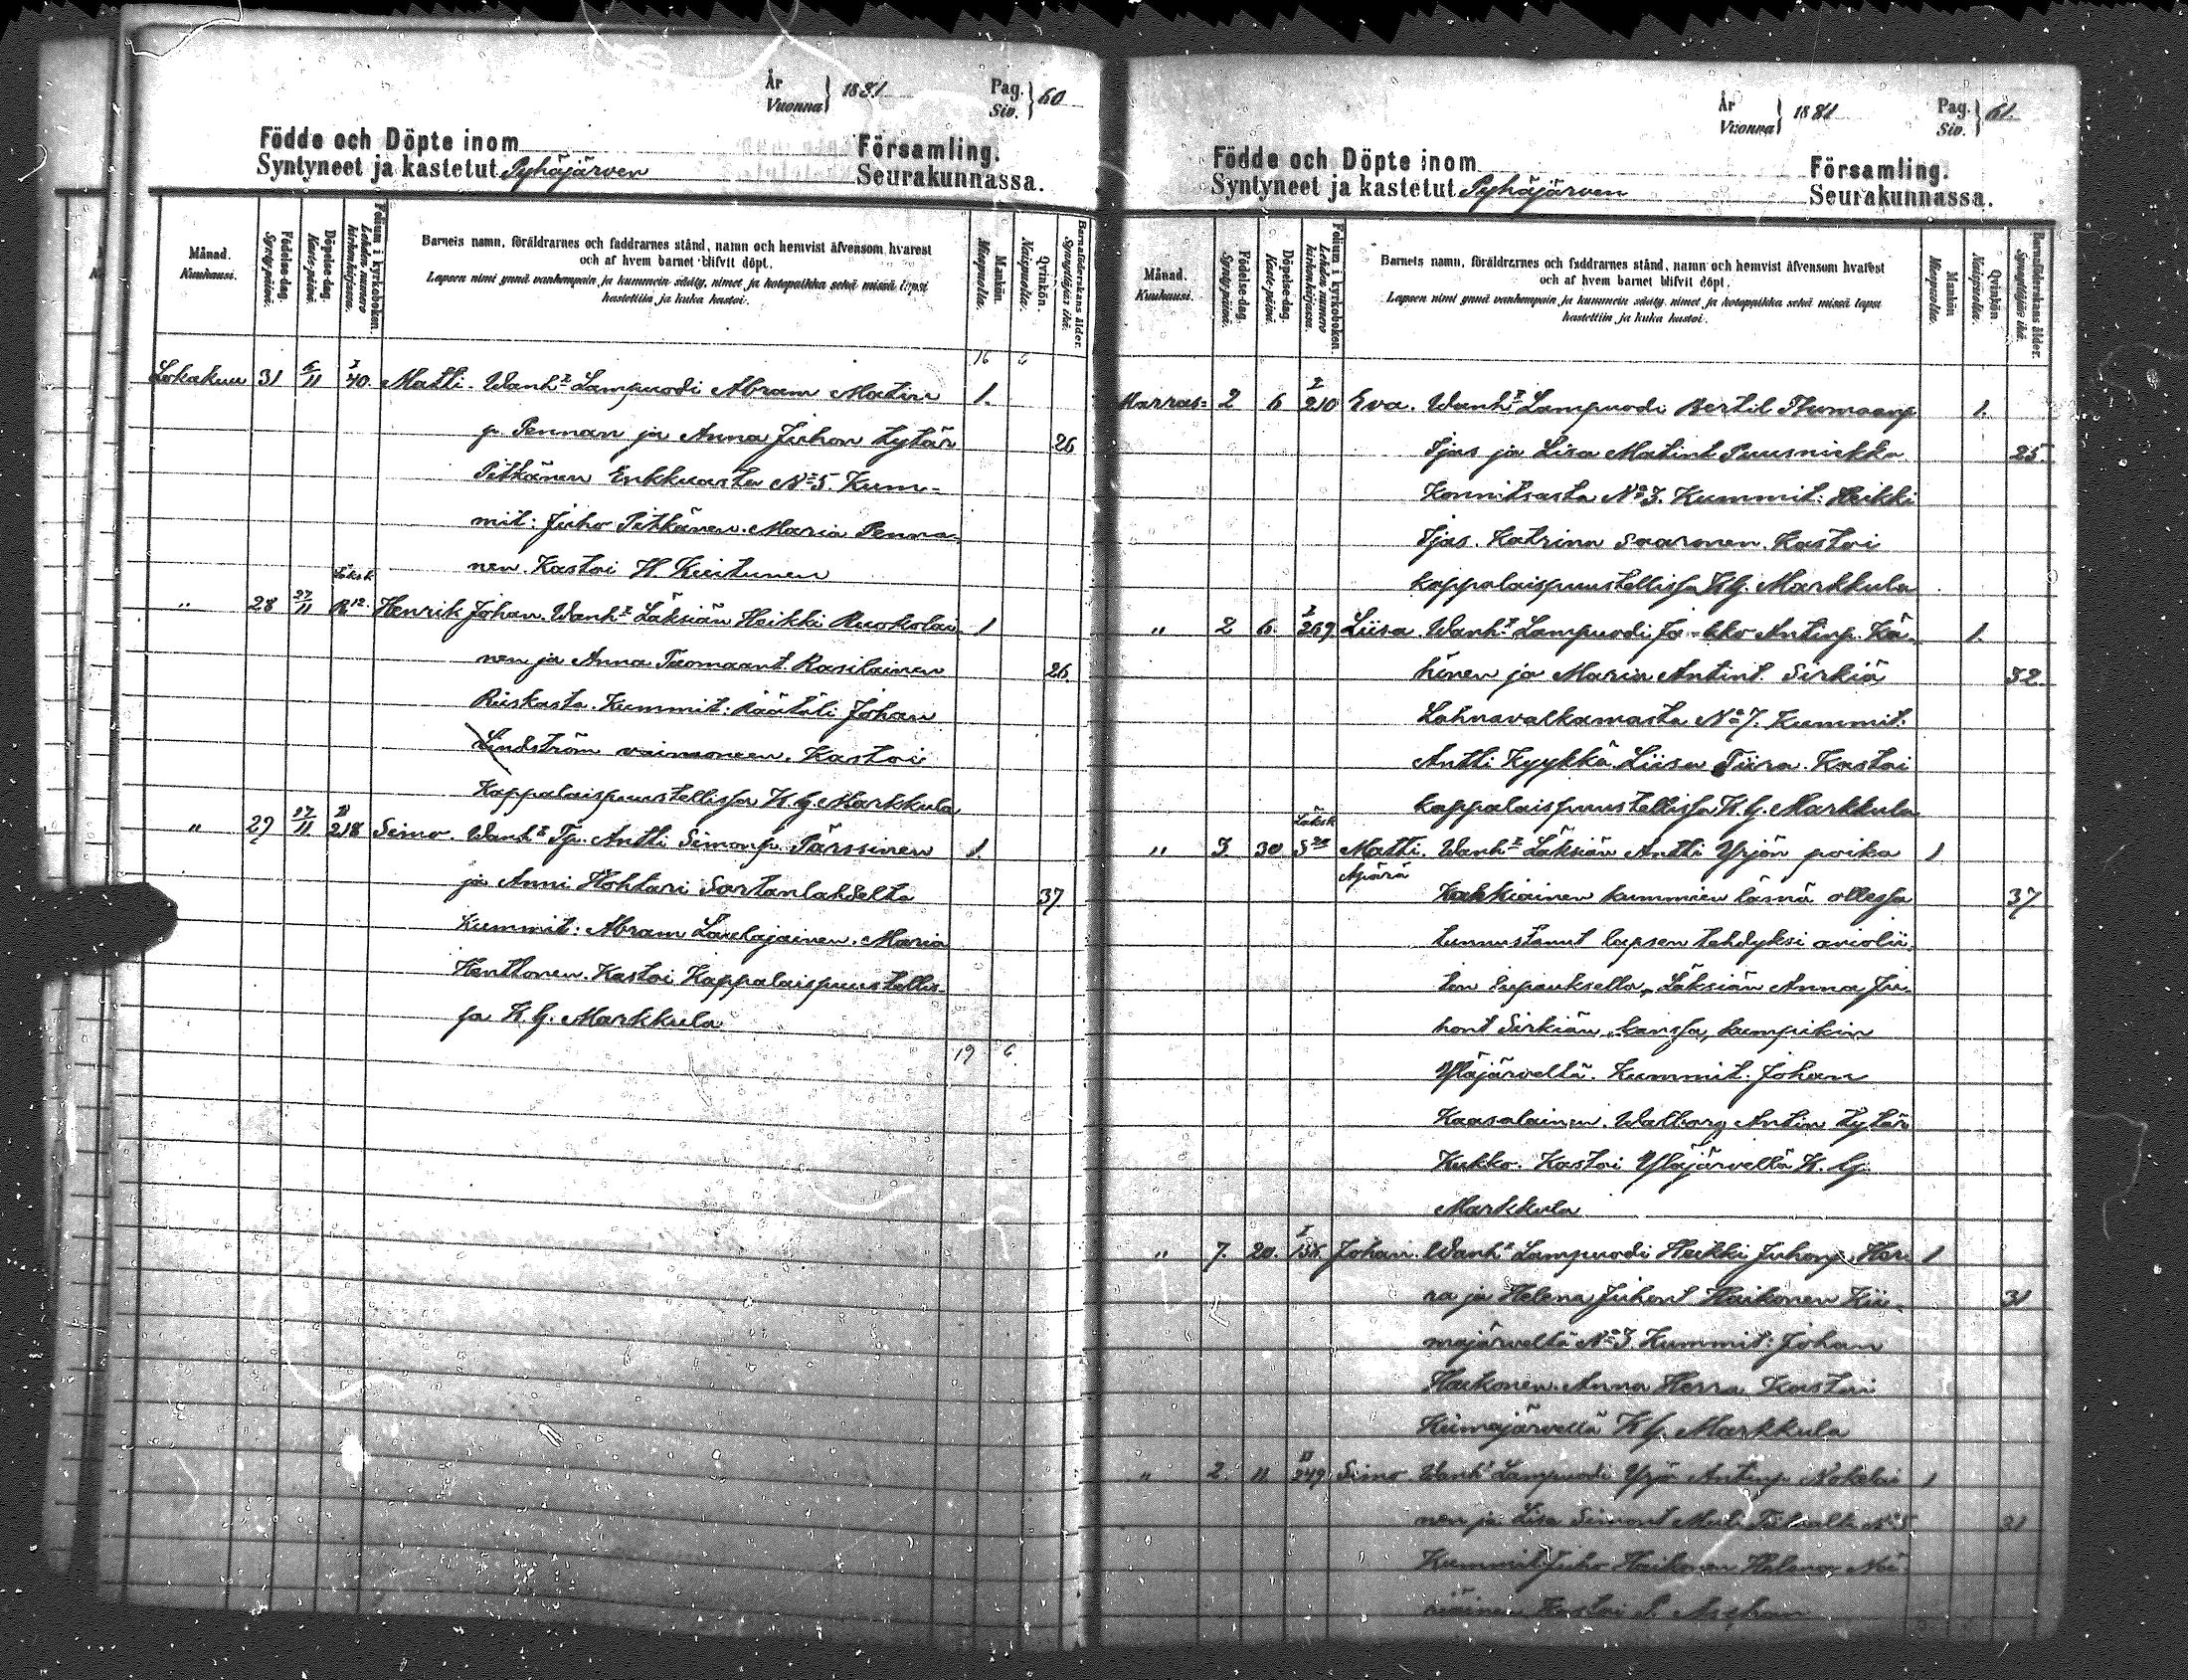 År Vuonna } 1881 Pag. Siv. } 60
Födde och Döpte inom Församling.
Syntyneet ja kastetut Pyhäjärven Seurakunnassa.
Månad. Kuukausi.
Födelse-dag. Synty-päivä.
Döpelse-dag. Kaste-päivä.
Folium i kyrkoboken. Lehden numero kirkonkirjassa.
Barnets namn, föräldrarnes och faddrarnes stånd, namn och hemvist äfvensom hvarest
och af hvem barnet blifvit döpt.
Lapsen nimi ynnä vanhempain ja kummein sääty, nimet ja kotopaikka sekä missä lapsi
kastettiin ja kuka kastoi.
Mankön. Miespuolta.
Qvinkön. Naispuolta.
Barnaföderskans ålder. Synnyttäjän ikä.
16 6
Lokakuu 31 6/11 I 40. Matti. Wanht Lampuodi Abram Matin 1.
p. Pennan ja Anna Juhon tytär 26
Pitkänen Enkkuasta No 5. Kum-
mit: Juho Pitkänen. Maria Penna-
nen. Kastoi H. Kuitunen
" 28 27/11 Läksk R 12. Henrik Johan. Wanht Läksiän Heikki Ruokolai- 1
nen ja Anna Tuomaant. Rasilainen 26.
Riiskasta. Kummit: Räätäli Johan
Lindström vaimoneen. Kastoi
Kappalaispuustellissa K. G. Markkula
" 29 27/11 II 218 Simo. Wanht Tp. Antti Simonp. Pärssinen 1.
ja Anni Hohtari Sortanlahdelta 37
Kummit: Abram Laulajainen. Maria
Henttonen. Kastoi Kappalaispuustellis-
sa K. G. Markkula
19 6
År Vuonna } 1881 Pag. Siv. } 61.
Födde och Döpte inom Församling.
Syntyneet ja kastetut Pyhäjärven Seurakunnassa.
Månad. Kuukausi.
Födelse-dag. Synty-päivä.
Döpelse-dag. Kaste-päivä.
Folium i kyrkoboken. Lehden numero kirkonkirjassa.
Barnets namn, föräldrarnes och faddrarnes stånd, namn och hemvist äfvensom hvarest
och af hvem barnet blifvit döpt.
Lapsen nimi ynnä vanhempain ja kummein sääty, nimet ja kotopaikka sekä missä lapsi
kastettiin ja kuka kastoi.
Mankön Miespuolta.
Qvinkön Naispuolta.
Barnaföderskans ålder. Synnyttäjän ikä.
Marras= 2 6 I 210 Eva. Wanht Lampuodi Bertil Thomaanp. 1.
Ijas ja Lisa Matint Puusniekka 25.
Konnitsasta No 3. Kummit: Heikki
Ijas. Katrina Saaronen. Kastoi
kappalaispuustellissa K G. Markkula
" 2 6. I 269 Liisa. Wanht Lampuodi Jaakko Antinp. Kä- 1.
hönen ja Maria Antint. Sirkiä 32.
Lahnavalkamasta No 7. Kummit:
Antti Kyykkä Liisa Tiira. Kastoi
kappalaispuustellissa K. G. Markkula
" 3. 30 Läksk S Matti. Wanht Läksiän Antti Yrjön poika 1
Äpärä
Kahkiainen kummien läsnä ollessa 37
tunnustanut lapsen tehdyksi aviolii-
ton lupauksella, Läksiän Anna Ju-
hont Sirkiän kanssa, kumpikin
Yläjärveltä. Kummit: Johan
Kaasalainen. Walborg Antin tytär
Kukko. Kastoi Yläjärvellä K. G.
Markkula
" 7. 20. I 138. Johan. Wanht Lampuodi Heikki Juhonp. Her- 1
ra ja Helena Juhont Haikonen Kii- 31
majärveltä No 3 Kummit: Johan
Haikonen. Anna Herra. Kastoi
Kiimajärvellä K G. Markkula
" 2. 11 II 249 Simo Wanht Lampuodi Yrjö Antinp Nokelai- 1
nen ja Lisa Simont No 5 31
Kummit: Juho Haikonen
Kastoi